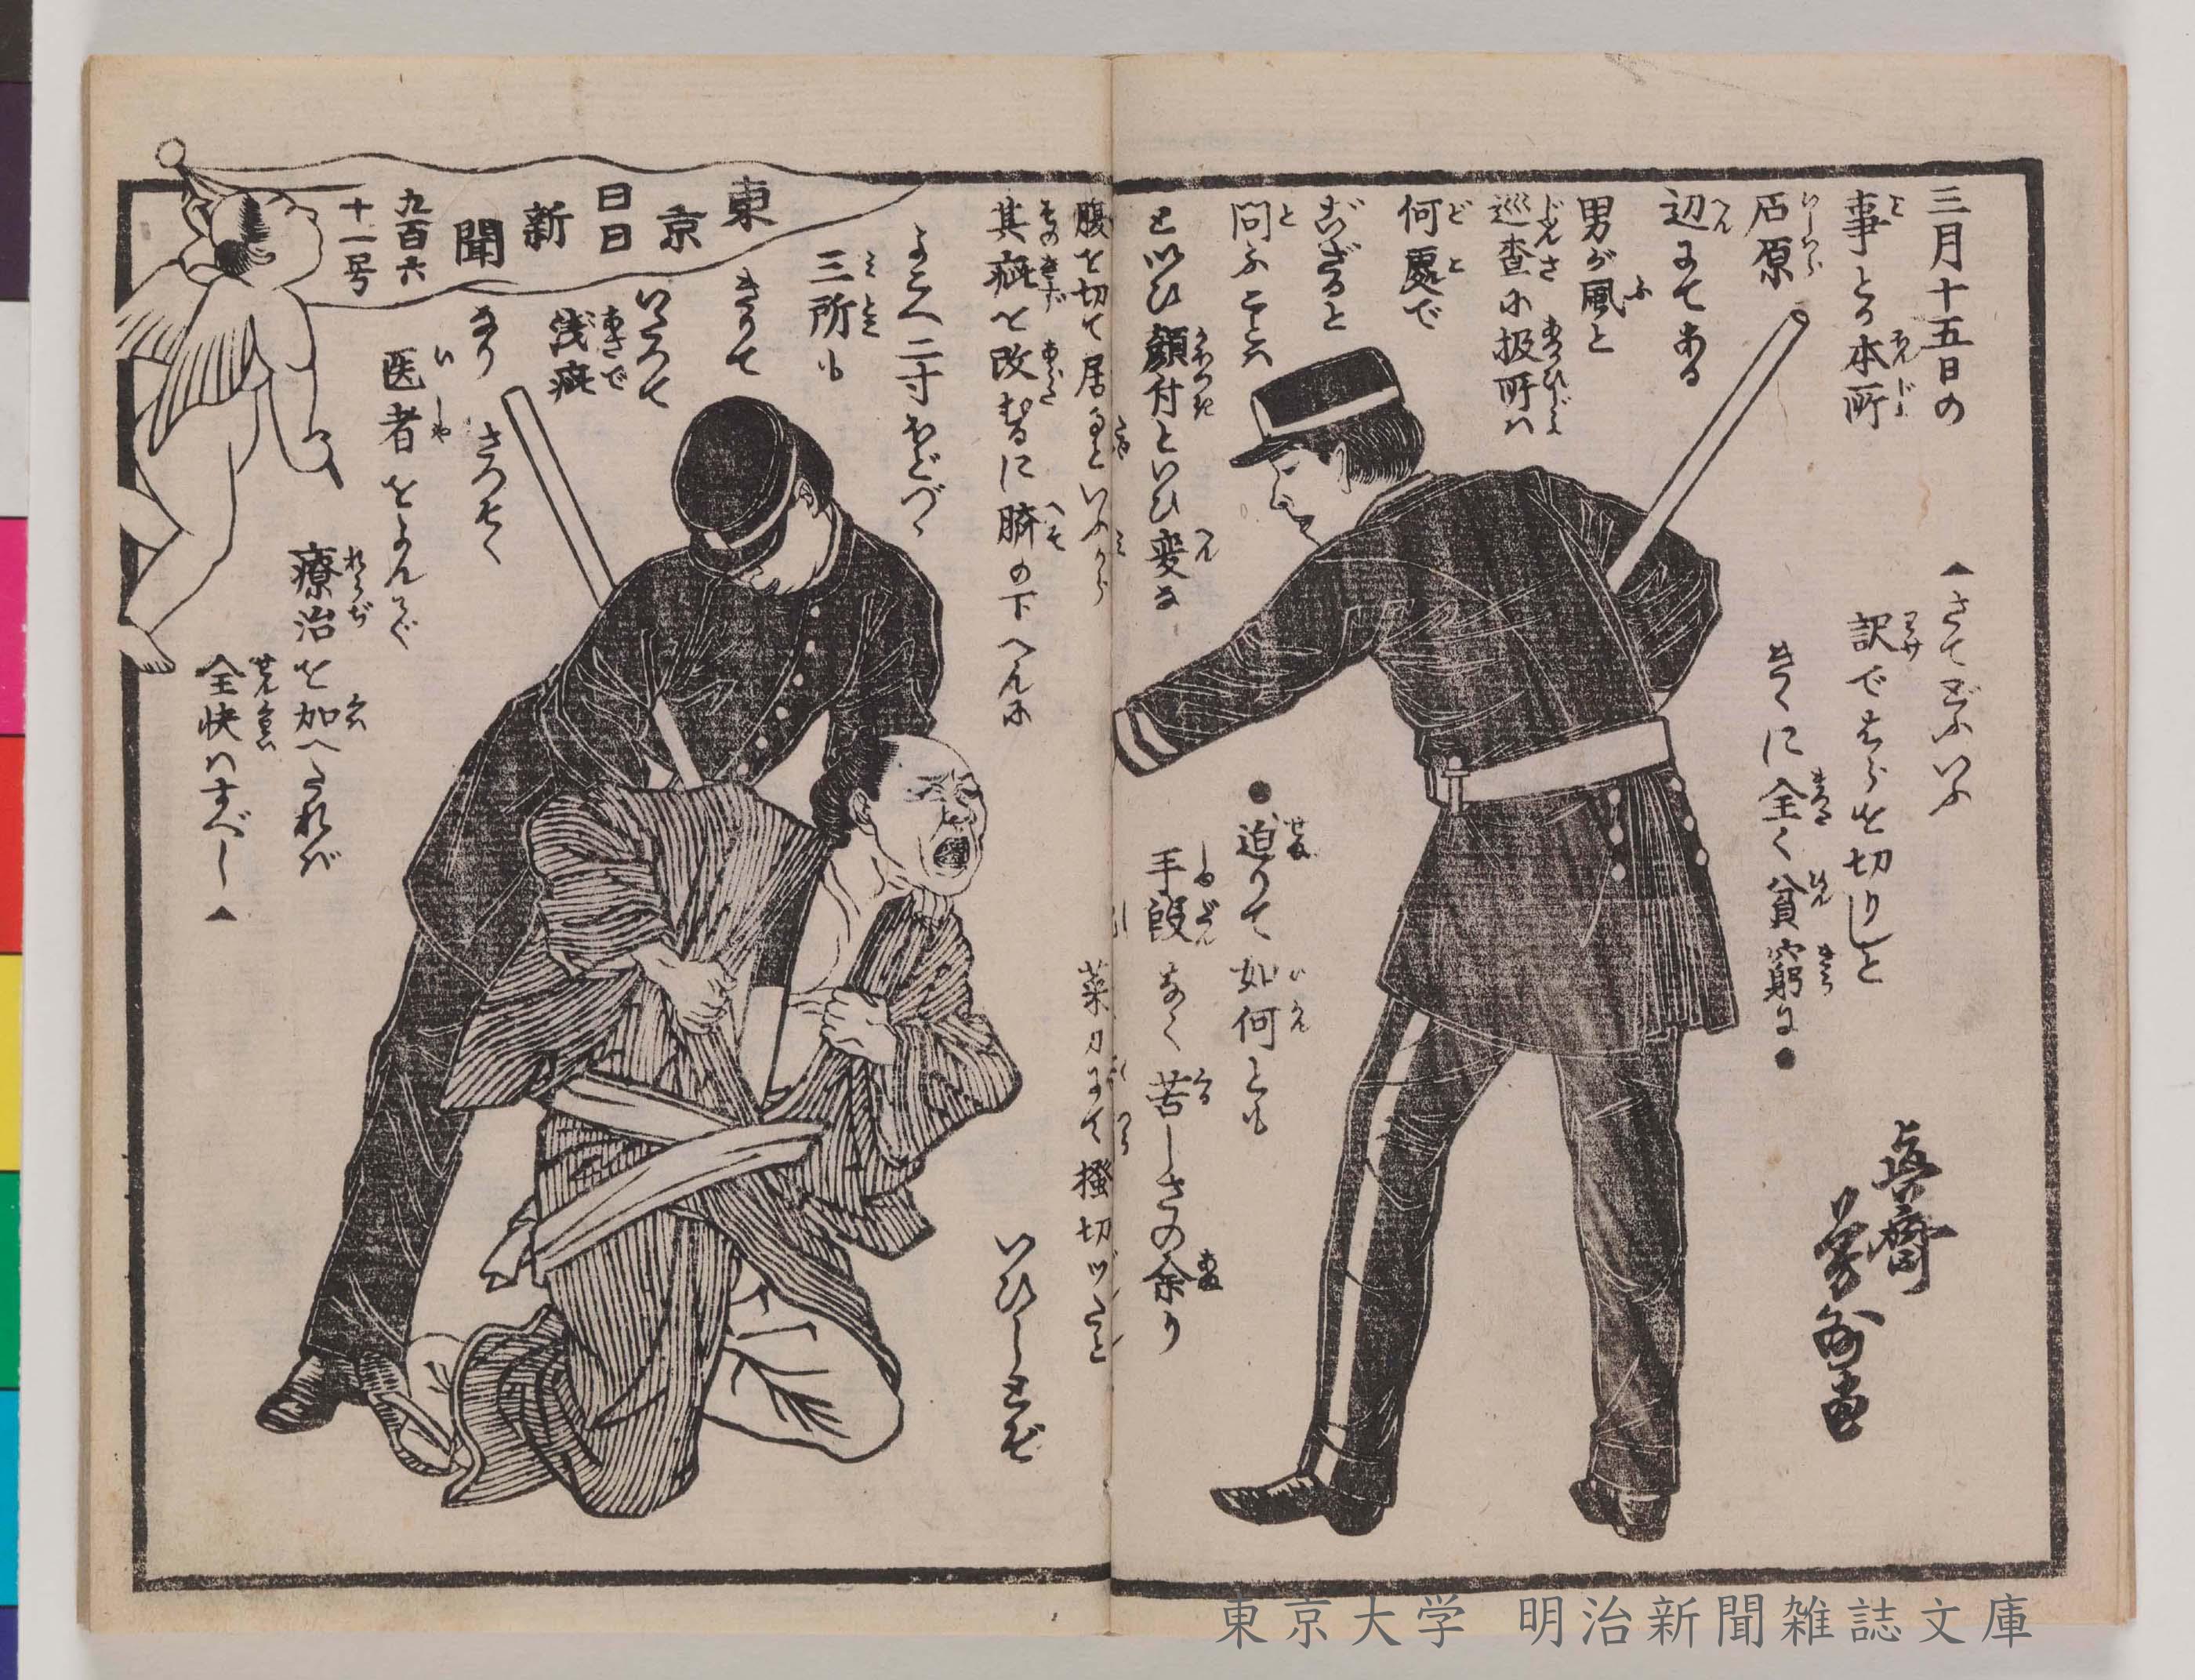 三月十五日の
事とか本所
石原
辺にてある
男が風と
巡査の扱所へ
何処で
ござると
問ふことハ
と以ひ顔付といひ変な
腹を切て居るといふから
其疵を改むるに臍の下へんに
よこへ二寸ほどづゝ
三所も
きりて
いたつて
浅疵
なり
さつそく
医者をよんで
療治を加へたれバ
全快ハすべし▲
▲さてどふいふ
訳ではらを切りしと
きくに全く貧窮に●
●迫りて如何とも
手段なく苦しさの余り
菜刀にて掻切ツたと
いひしとぞ
真斎
芳州画
東京日日新聞
九百六
十一号
東京大学 明治新聞雑誌文庫